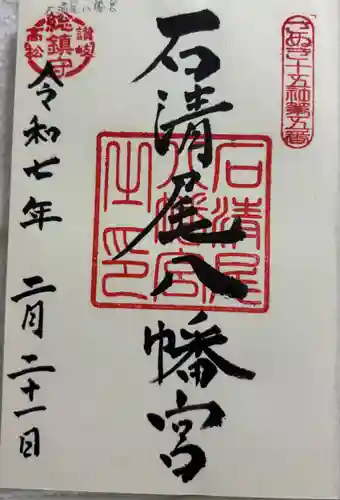 さぬき十五社第五番
石清尾八幡宮
石清尾八幡宮之印
讃岐
総鎮守
高松
令和七年 二月二十一日